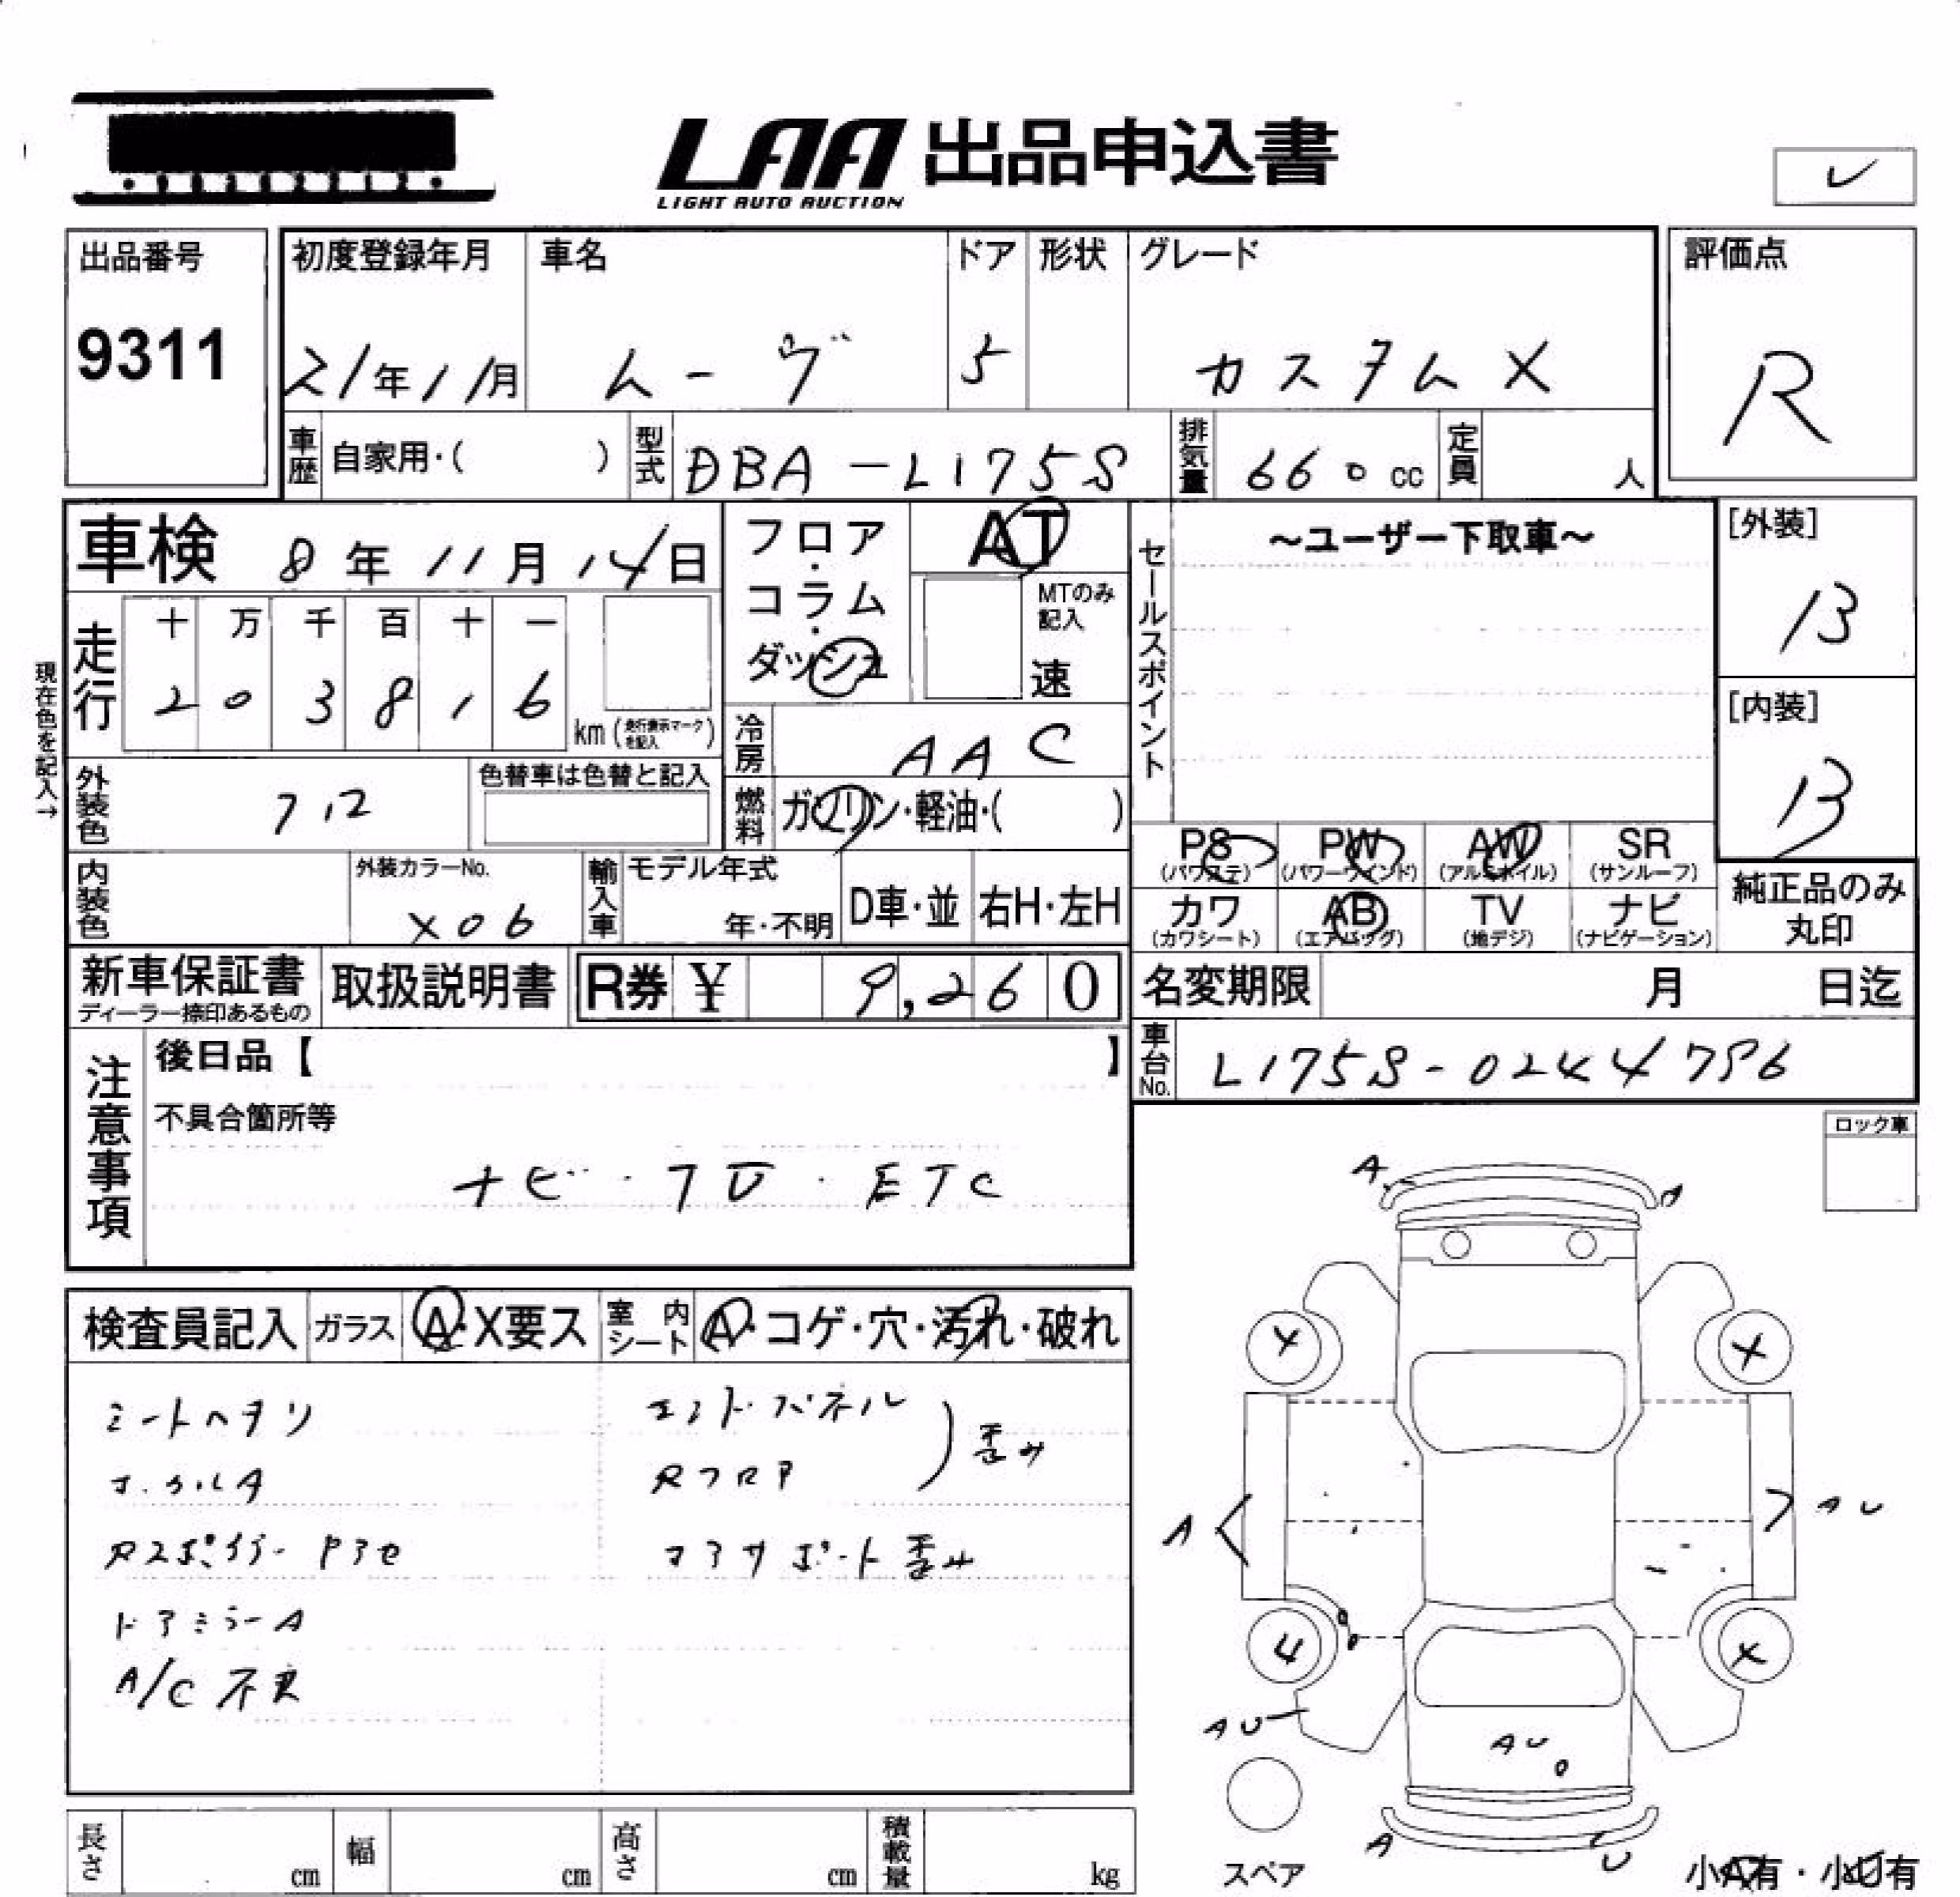 LAA 出品申込書
LIGHT AUTO AUCTION
レ
出品番号
9311
初度登録年月 車名 ドア 形状 グレード
21年11月 ムーヴ 5 カスタムX
評価点
R
車歴 自家用・( ) 型式 DBA-L175S 排気量 660cc 定員 人
車検 8年11月14日
フロア・コラム・ダッシュ
AT
MTのみ記入
速
セールスポイント
～ユーザー下取車～
[外装]
B
[内装]
B
現在色を記入→
走行
十 万 千 百 十 一
2 0 3 8 1 6 km(走行表示マークを記入)
冷房 AAC
外装色
色替車は色替と記入
燃料 ガソリン・軽油・( )
PS (パワステ) PW (パワーウインド) AW (アルミホイル) SR (サンルーフ)
カワ (カワシート) AB (エアバッグ) TV (地デジ) ナビ (ナビゲーション)
純正品のみ丸印
内装色 外装カラーNo. X06
輸入車 モデル年式 年・不明 D車・並 右H・左H
新車保証書 ディーラー捺印あるもの
取扱説明書
R券 ¥ 9,260
名変期限 月 日迄
車台No. L175S-0244796
注意事項
後日品【 】
不具合箇所等
ナビ・TV・ETC
ロック車
検査員記入 ガラス A・X要ス 室内シート A・コゲ・穴・汚れ・破れ
シートヘタリ
Rスポイラー
ドアミラーA
A/C不良
エンドパネル
Rフロア
歪み
コアサポート歪み
A
A
A
AU
AU
AU
A
U
スペア
小A有・小U有
長さ cm 幅 cm 高さ cm 積載量 kg